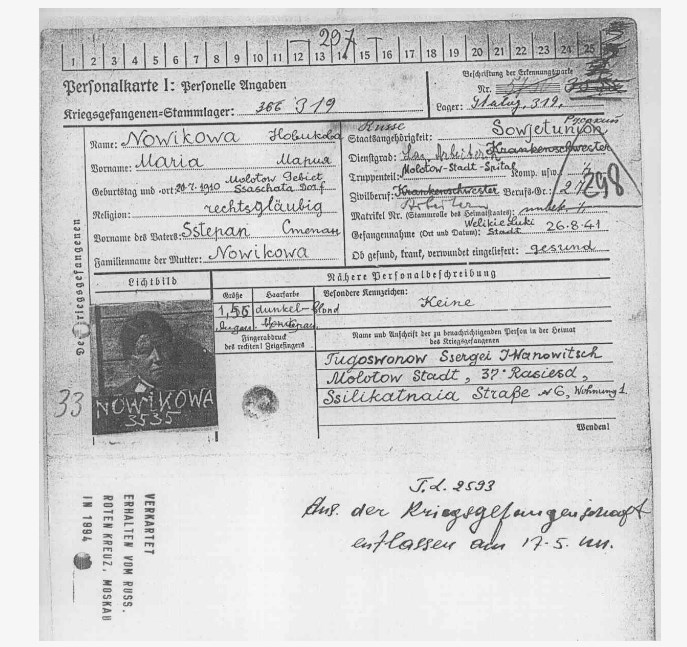 297
1 2 3 4 5 6 7 8 9 10 11 12 13 14 15 16 17 18 19 20 21 22 23 24 25
Personalkarte I: Personelle Angaben
Kriegsgefangenen=Stammlager: 319
Beschriftung der Erkennungsmarke
Nr.
Lager: Stalag, 319.
Des Kriegsgefangenen
Name: Nowikowa Новикова
Vorname: Maria Мария
Geburtstag und -ort: 20.7.1910 Molotow Gebiet
Ssaschata Dorf
Religion: rechtsgläubig
Vorname des Vaters: Sstepan Степан
Familienname der Mutter: Nowikowa
Russe
Staatsangehörigkeit: Sowjetunion
Dienstgrad: Krankenschwester
Truppenteil: Molotow-Stadt-Spital Komp. usw.:
Zivilberuf: Krankenschwester Berufs-Gr.:
298
Arbeiterin
Matrikel Nr. (Stammrolle des Heimatstaates): unbek.
Gefangennahme (Ort und Datum): Welikie Luki Stadt 26.8.41
Ob gesund, krank, verwundet eingeliefert: gesund
Lichtbild
Nähere Personalbeschreibung
Größe Haarfarbe Besondere Kennzeichen:
1,56 dunkel-blond Keine
Fingerabdruck
des rechten! Zeigefingers
Name und Anschrift der zu benachrichtigenden Person in der Heimat
des Kriegsgefangenen
Tugoswonow Ssergei Iwanowitsch
Molotow Stadt, 37 Rasiesd,
Ssilikatnaia Straße № 6, Wohnung 1.
Wenden!
33
NOWIKOWA
3535
T.L. 2593
Aus der Kriegsgefangenschaft
entlassen am 17.5.
VERKARTET
ERHALTEN VOM RUSS.
ROTEN KREUZ, MOSKAU
IN 1994